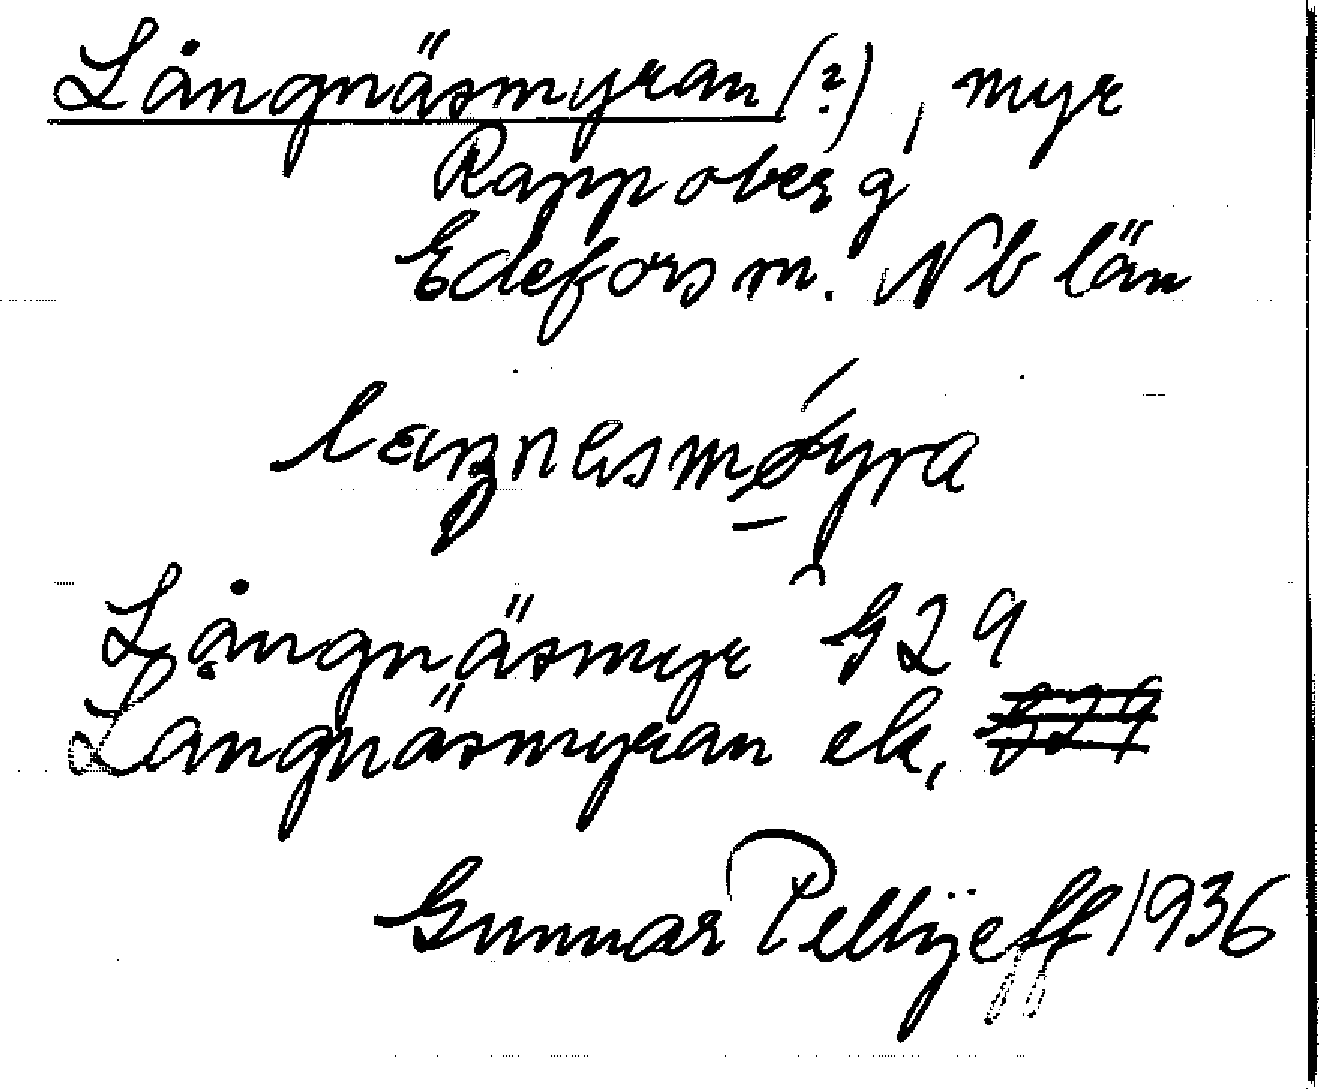 Långnäsmyran (?), myr
Rappoberg
Edefors sn. Nb län
Långnäsmyr G29
Långnäsmyran ek,
Gunnar Pellijeff 1936